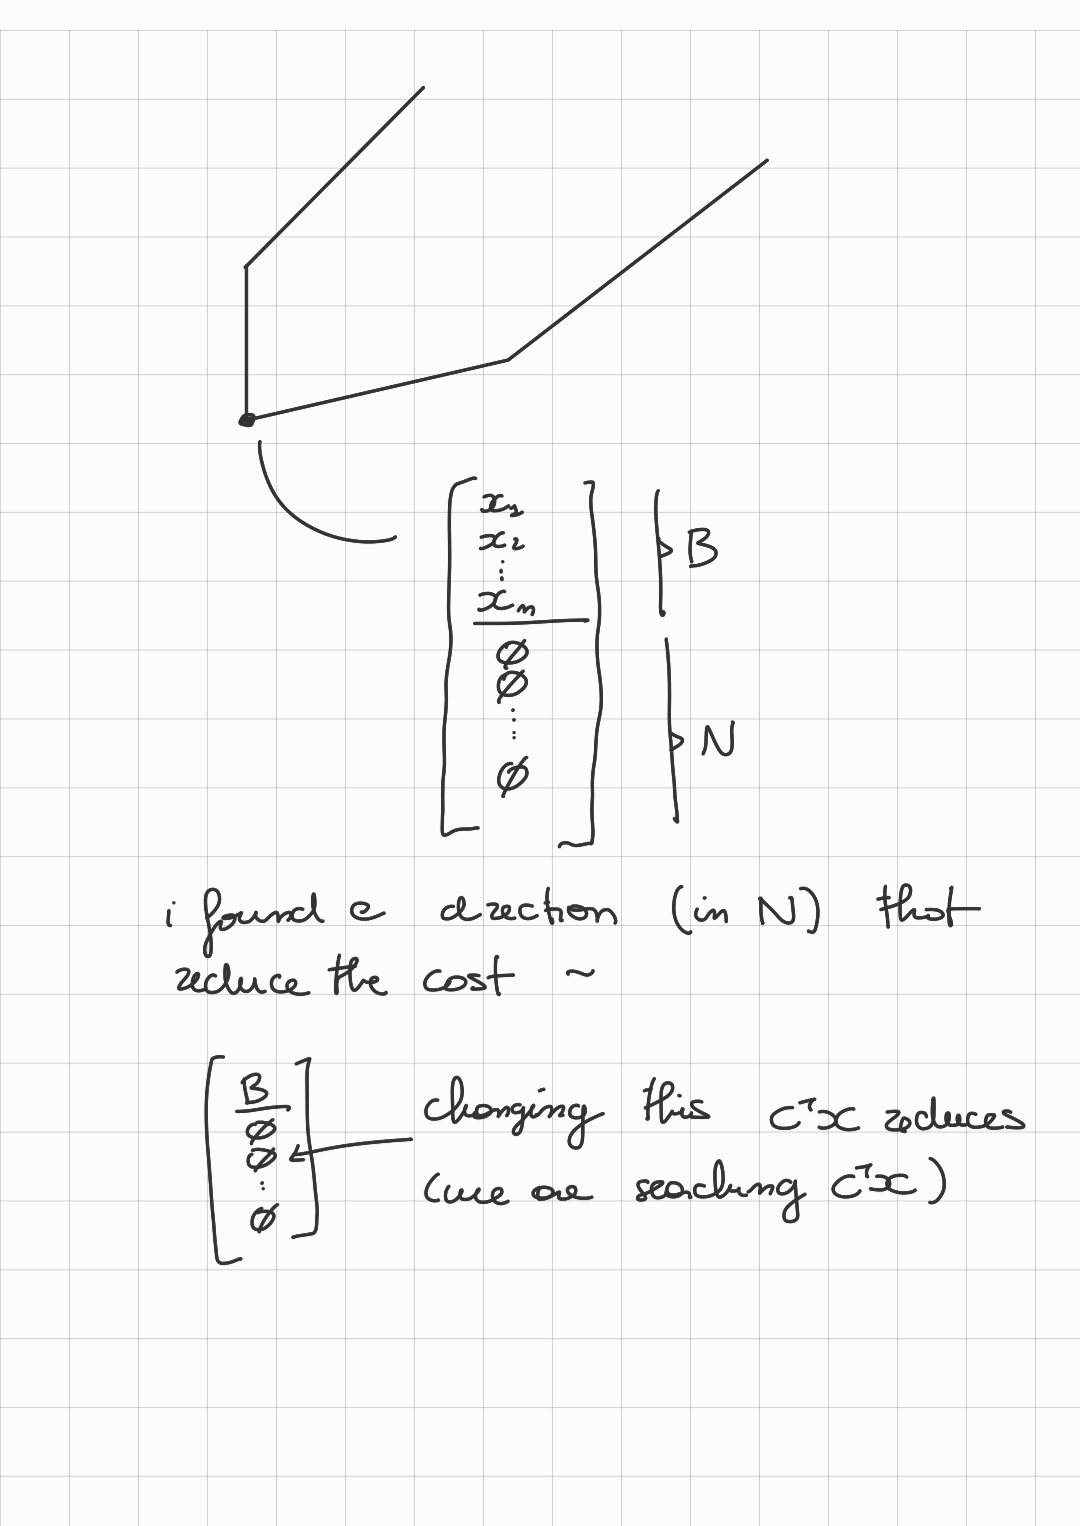 x₁
x₂
⋮
xₘ
B
∅
∅
⋮
∅
N
i found a direction (in N) that
reduce the cost ~
B
∅
∅
⋮
∅
changing this cᵀx reduces
(we are searching cᵀx)